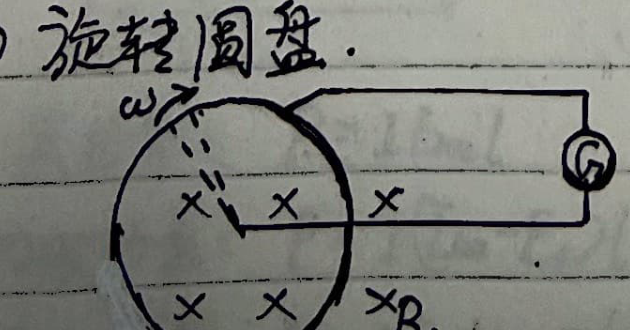 ) 旋转圆盘.
ω
G
× × ×
× × ×B